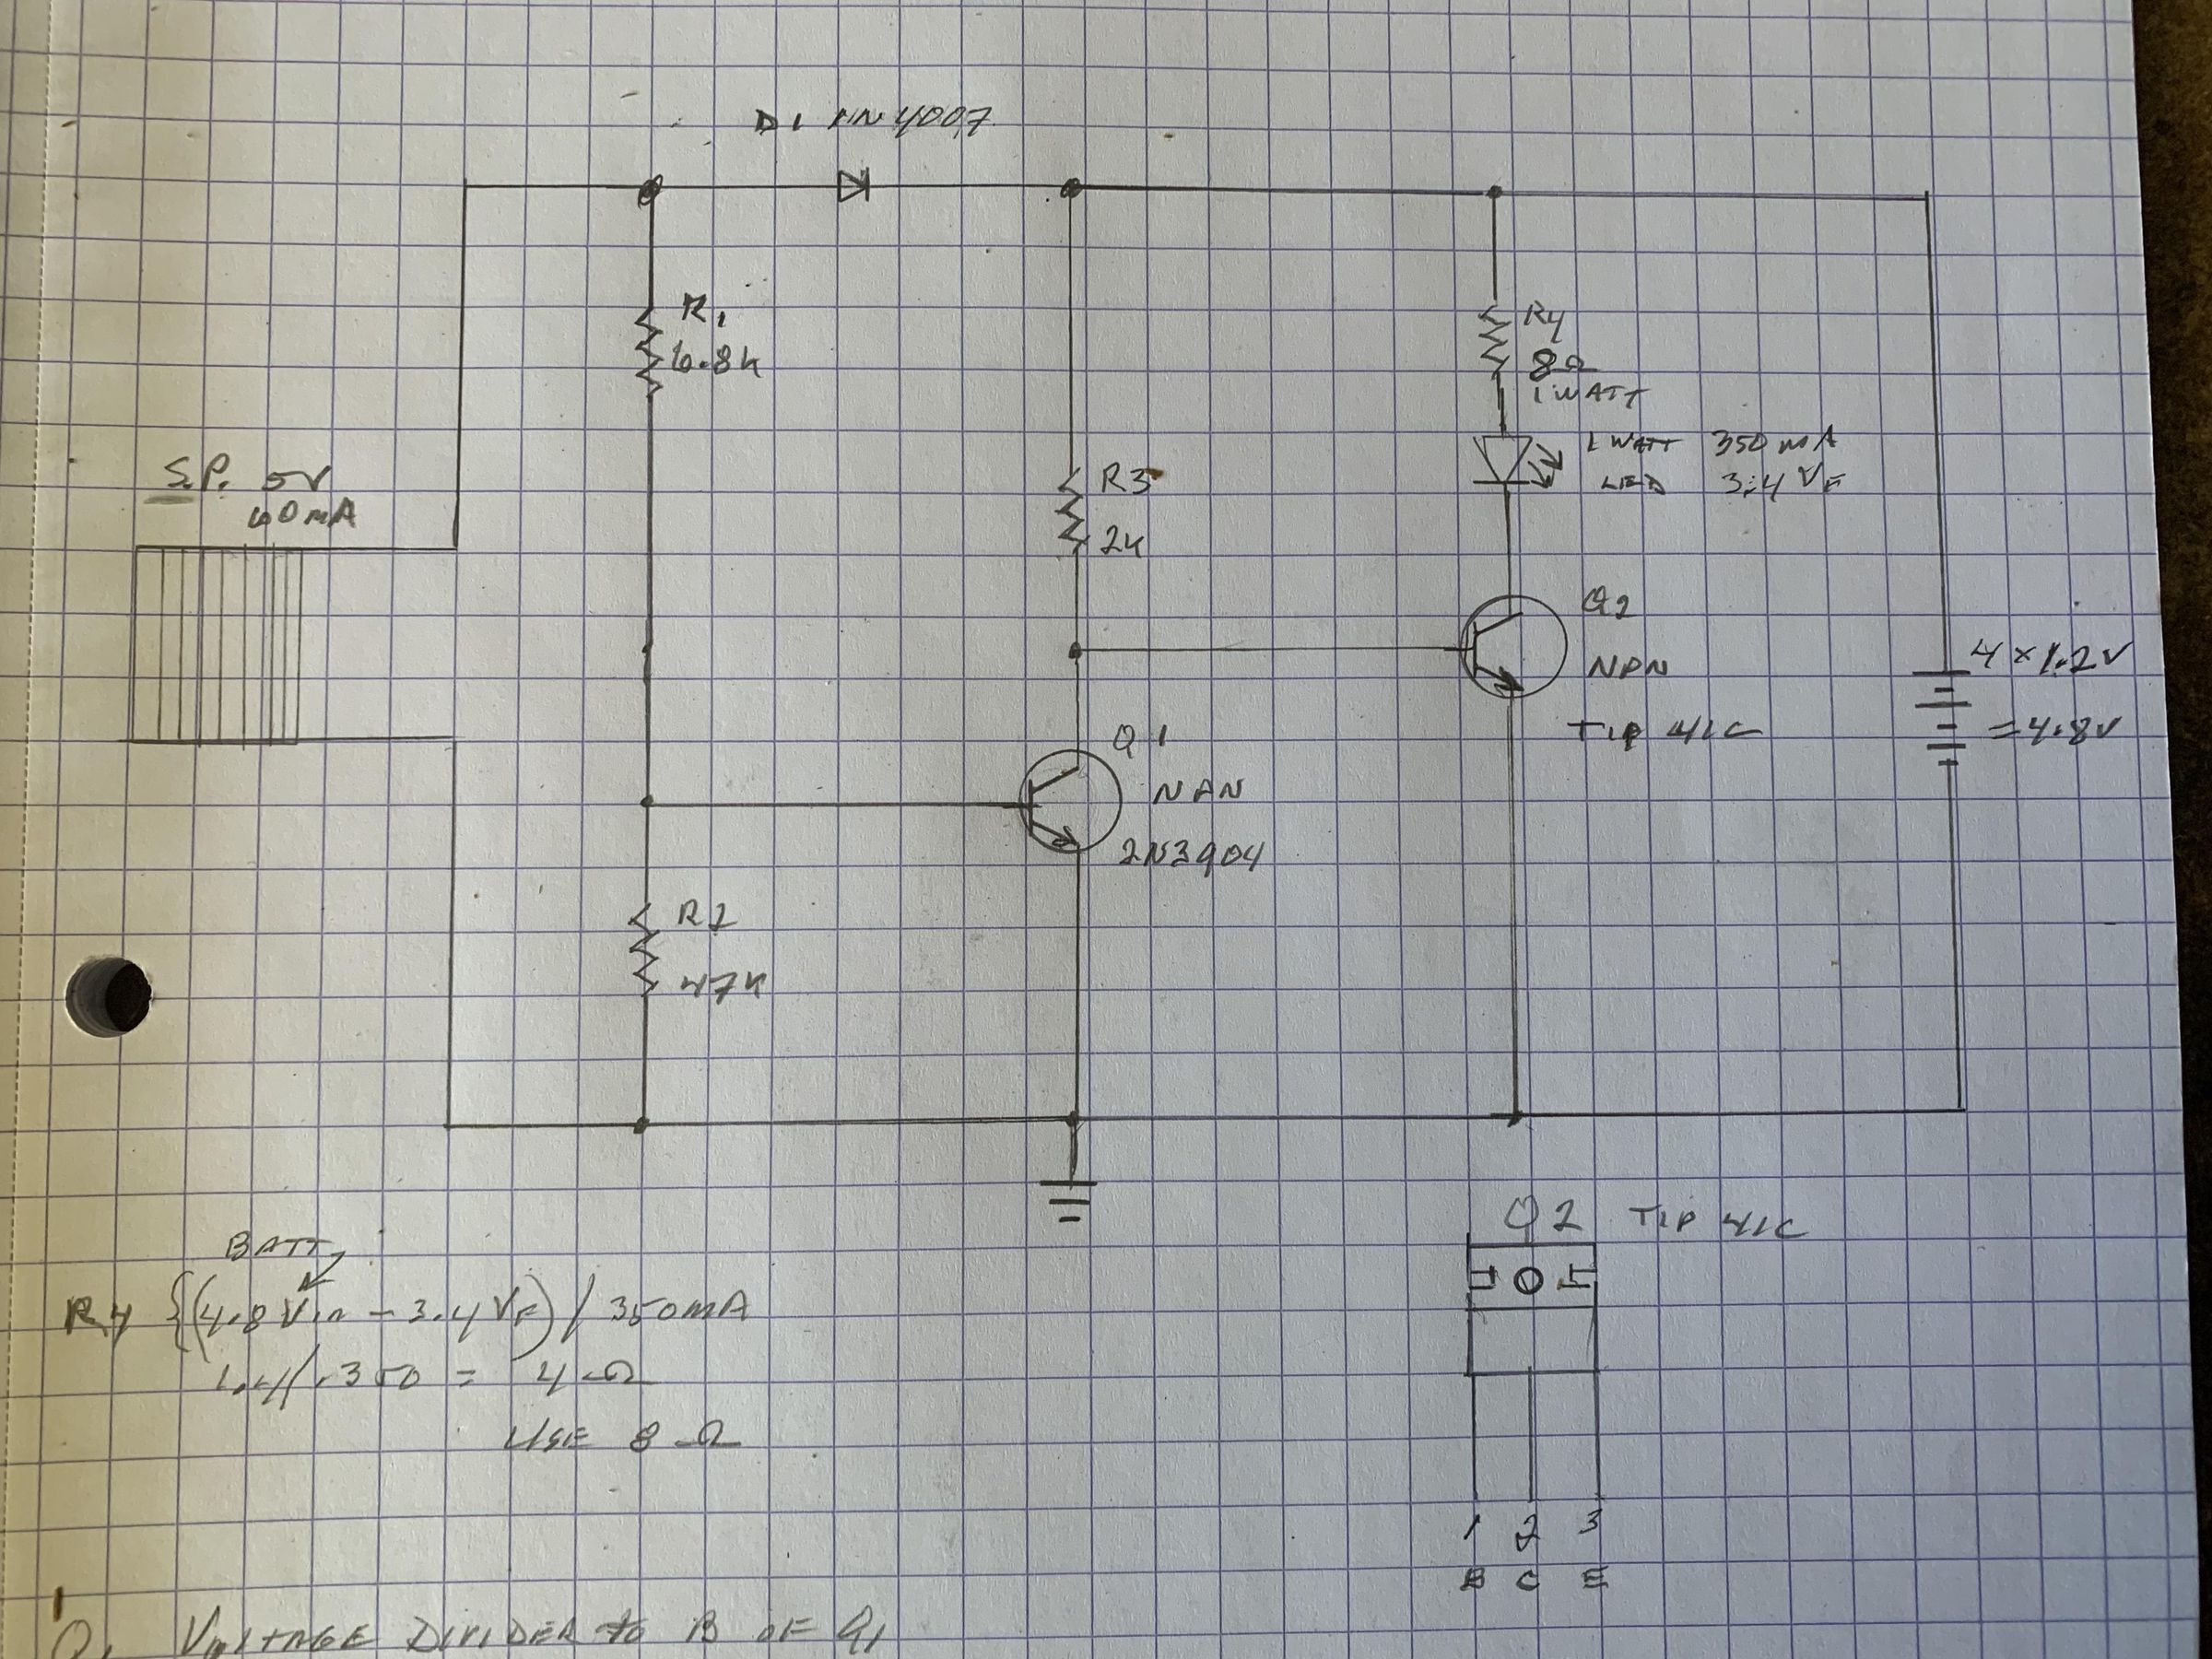 D1 1N4007
R1
6.8K
R4
8Ω
1 WATT
1 WATT 350 mA
LED 3.4 VF
S.P. 5V
60mA
R3
2K
Q2
NPN
TIP 41C
4 x 1.2V
= 4.8V
Q1
NPN
2N3904
R2
47K
Q2 TIP 41C
BATT
R4 {(4.8 Vin - 3.4 VF) / 350mA
1.4/.350 = 4Ω
USE 8Ω
1 2 3
B C E
Q1 VOLTAGE DIVIDER to B OF Q1